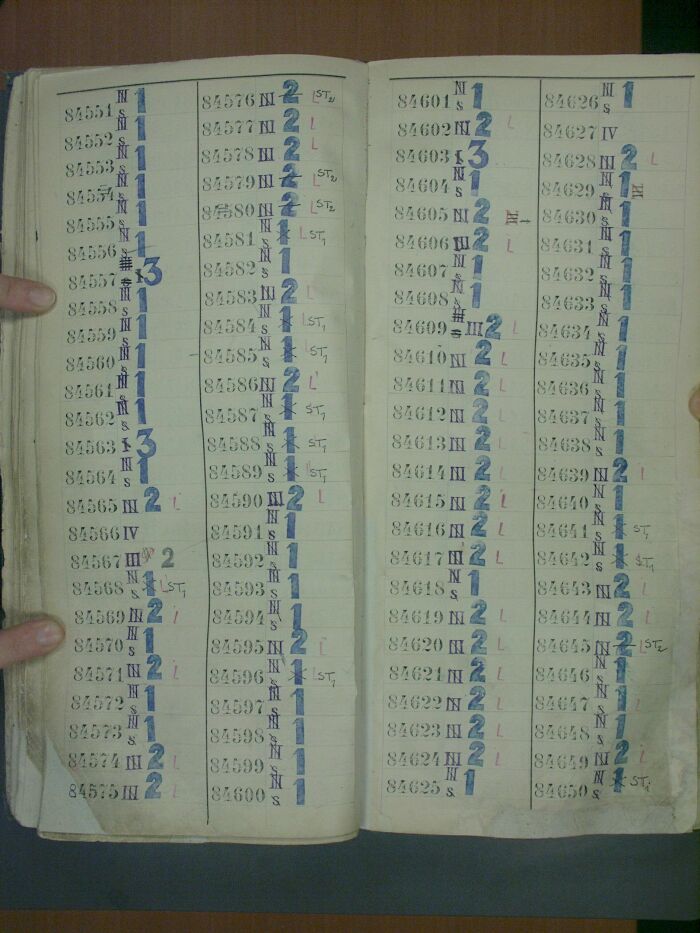 84551 N S 1
84552 N S 1
84553 N S 1
84554 N S 1
84555 N S 1
84556 N S 1
84557 1 3
84558 N S 1
84559 N S 1
84560 N S 1
84561 N S 1
84562 N S 1
84563 1 3
84564 N S 1
84565 III 2 L
84566 IV
84567 III 2
84568 N S 1 L ST1
84569 III 2 L
84570 N S 1
84571 III 2 L
84572 N S 1
84573 N S 1
84574 III 2 L
84575 III 2 L
84576 III 2 L ST2
84577 III 2 L
84578 III 2 L
84579 III 2 L ST2
84580 III 2 L ST2
84581 N S 1 L ST1
84582 N S 1
84583 III 2 L
84584 N S 1 L ST1
84585 N S 1 L ST1
84586 III 2 L
84587 N S 1 ST1
84588 N S 1 ST1
84589 N S 1 L ST1
84590 III 2 L
84591 N S 1
84592 N S 1
84593 N S 1
84594 N S 1
84595 III 2 L
84596 N S 1 L ST1
84597 N S 1
84598 N S 1
84599 N S 1
84600 N S 1
84601 N S 1
84602 III 2 L
84603 1 3
84604 N S 1
84605 III 2 III
84606 III 2 L
84607 N S 1
84608 N S 1
84609 III 2 L
84610 III 2 L
84611 III 2 L
84612 III 2 L
84613 III 2 L
84614 III 2 L
84615 III 2 L
84616 III 2 L
84617 III 2 L
84618 N S 1
84619 III 2 L
84620 III 2 L
84621 III 2 L
84622 III 2 L
84623 III 2 L
84624 III 2 L
84625 N S 1
84626 N S 1
84627 IV
84628 III 2 L
84629 N S 1 III
84630 N S 1
84631 N S 1
84632 N S 1
84633 N S 1
84634 N S 1
84635 N S 1
84636 N S 1
84637 N S 1
84638 N S 1
84639 III 2 L
84640 N S 1
84641 N S 1 ST1
84642 N S 1 ST1
84643 III 2 L
84644 III 2 L
84645 III 2 L ST2
84646 N S 1
84647 N S 1
84648 N S 1
84649 III 2 L
84650 N S 1 ST1